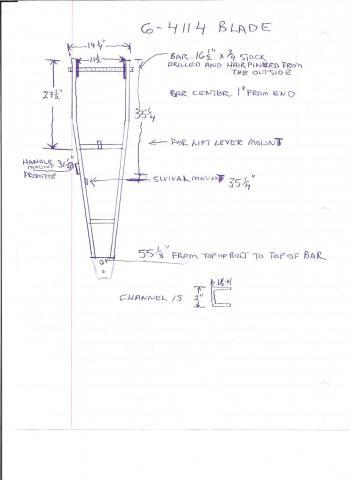 6-4114 BLADE
14 1/4"
11 1/2
BAR 16 1/2" x 3/4 STOCK
DRILLED AND HAIRPINNED FROM
THE OUTSIDE
23 1/2"
35 1/4
BAR CENTER 1" FROM END
FOR LIFT LEVER MOUNT
HANDLE 31 1/2"
MOUNT
FROM TOP
SWIVAL MOUNT 35 1/4"
55 1/8" FROM TOP OF BOLT TO TOP OF BAR
CHANNEL IS
3"